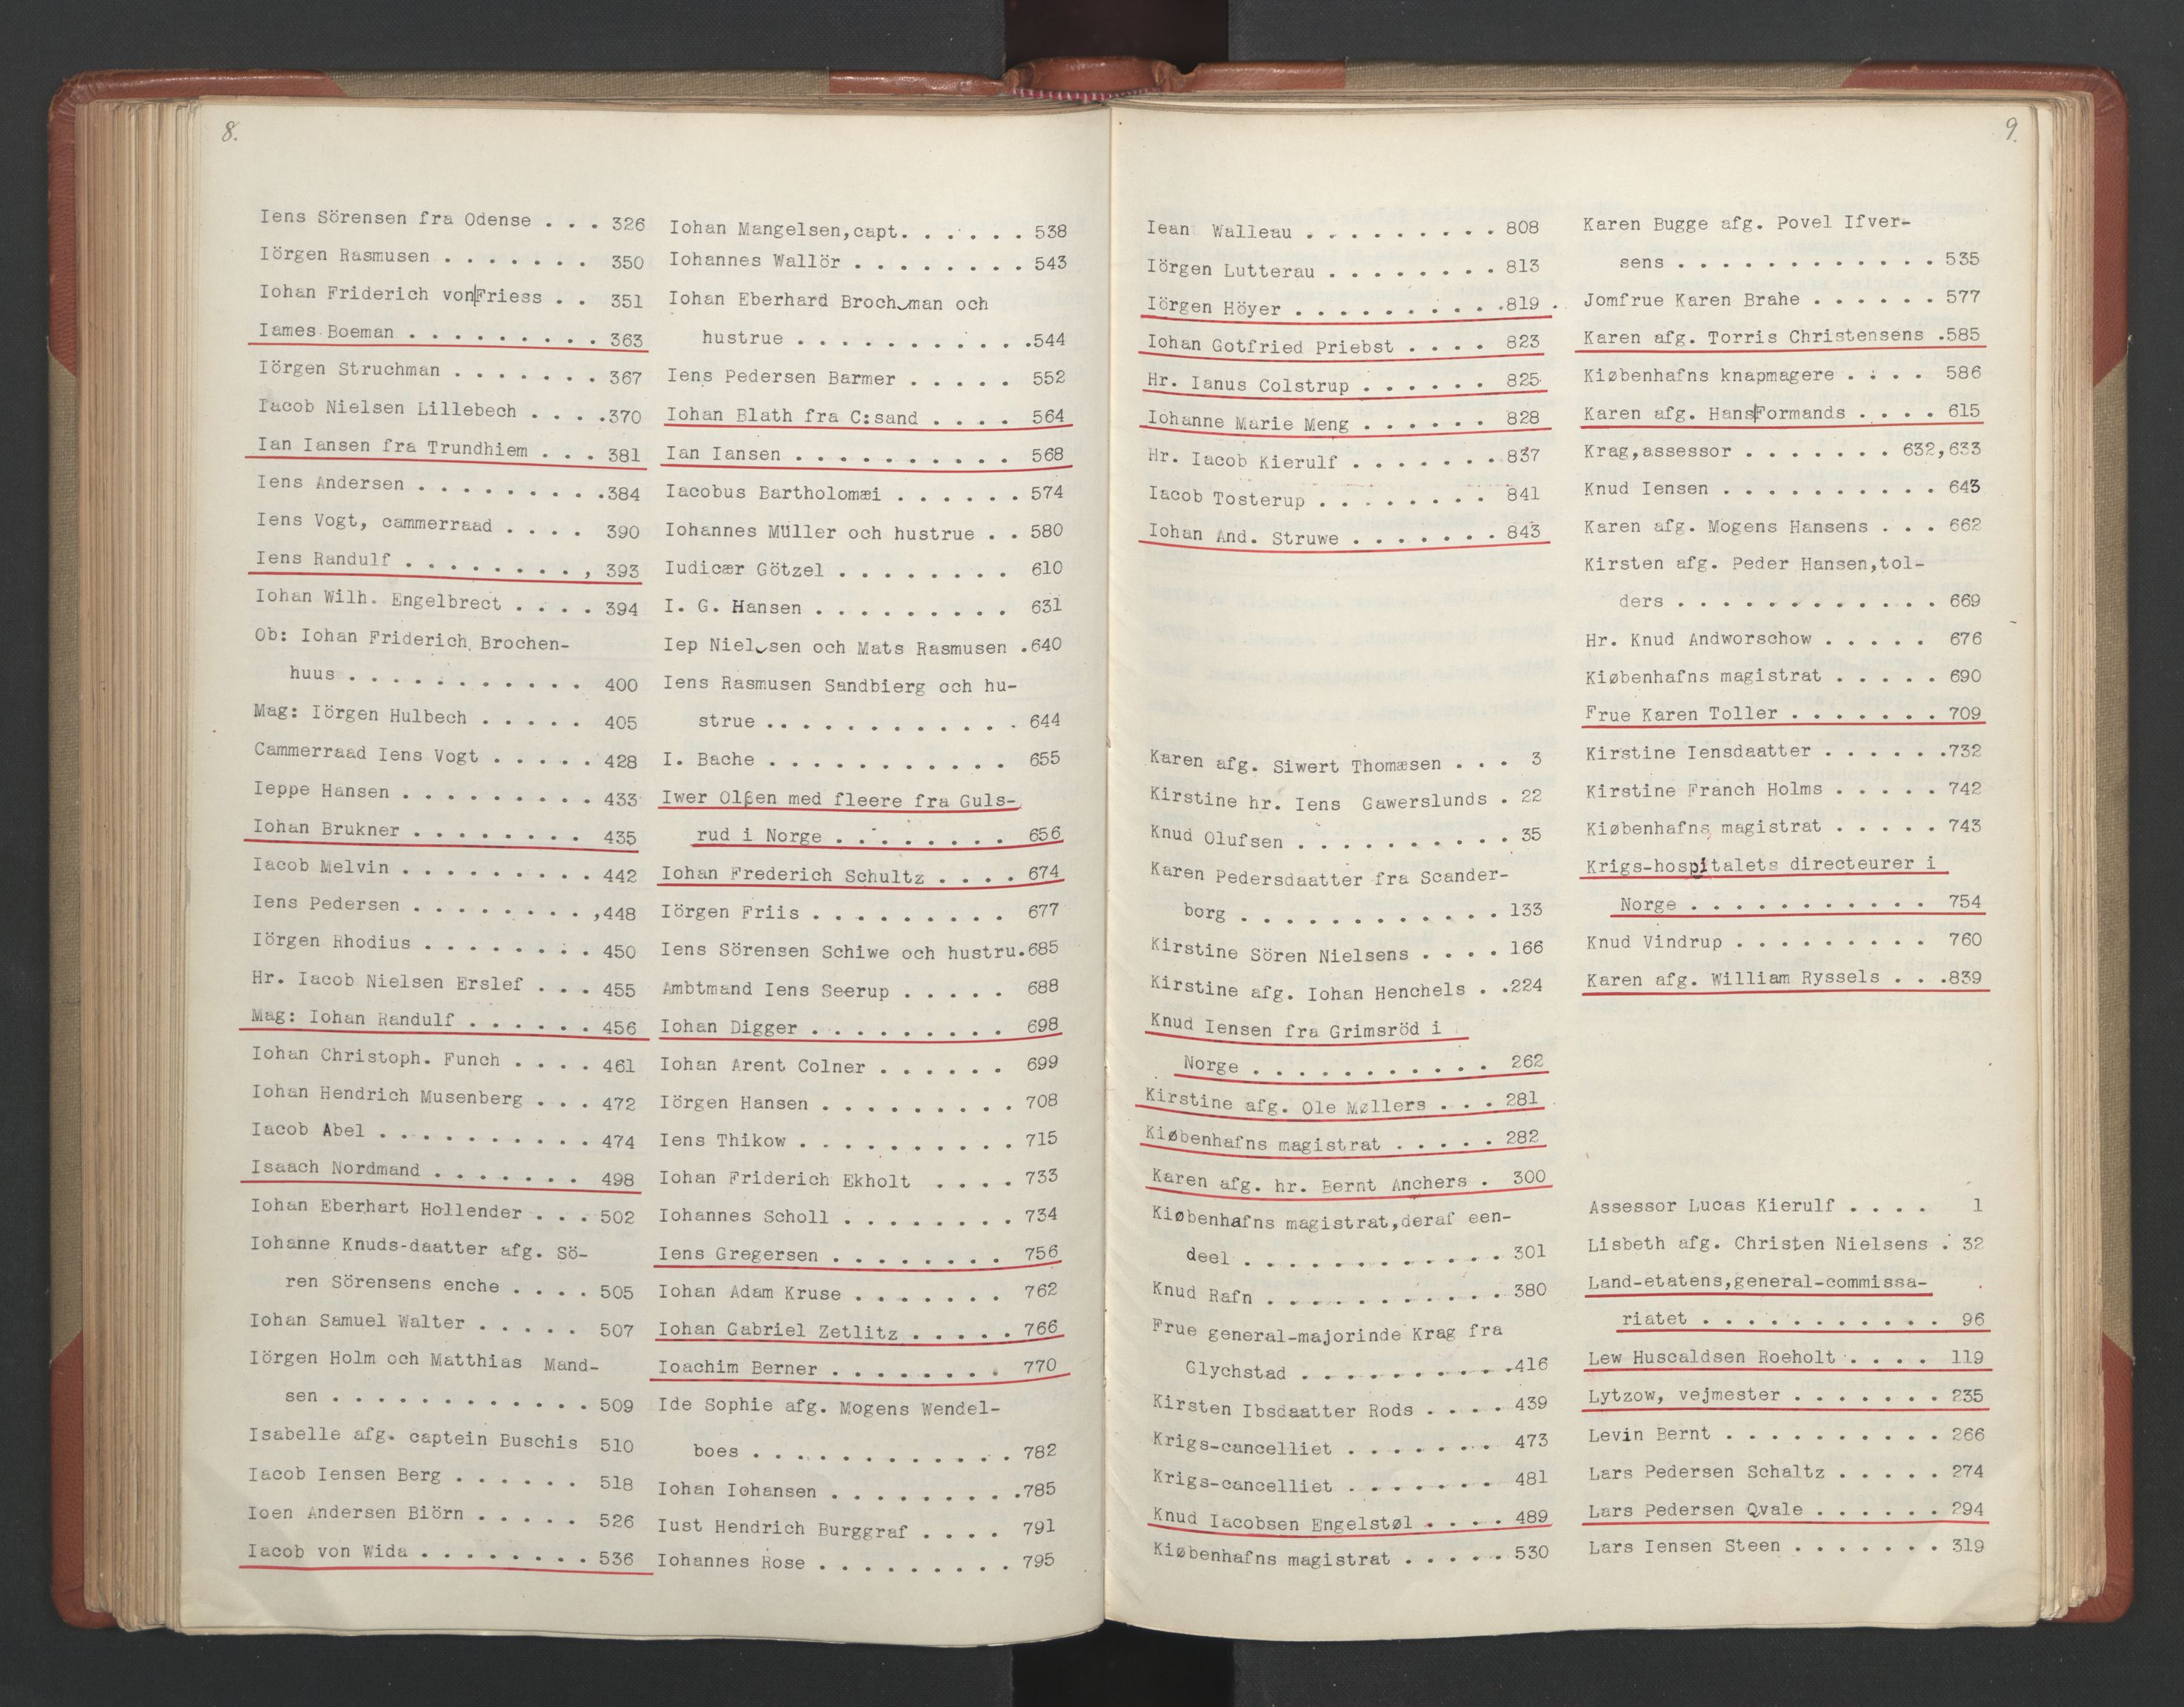 8.
Iens Sörensen fra Odense . . . 326
Iörgen Rasmusen . . . . . . . 350
Iohan Friderich von|Friess . . 351
Iames Boeman . . . . . . . . . 363
Iörgen Struchman . . . . . . . 367
Iacob Nielsen Lillebech . . . .370
Ian Iansen fra Trundhiem . . . 381
Iens Andersen . . . . . . . . .384
Iens Vogt, cammerraad . . . . 390
Iens Randulf . . . . . . . . , 393
Iohan Wilh. Engelbrect . . . . 394
Ob: Iohan Friderich Brochen-
huus . . . . . . . . . . . 400
Mag: Iörgen Hulbech . . . . . 405
Cammerraad Iens Vogt . . . . . 428
Ieppe Hansen . . . . . . . . . 433
Iohan Brukner . . . . . . . . 435
Iacob Melvin . . . . . . . . . 442
Iens Pedersen . . . . . . . . ,448
Iörgen Rhodius . . . . . . . . 450
Hr. Iacob Nielsen Erslef . . . 455
Mag: Iohan Randulf . . . . . . 456
Iohan Christoph. Funch . . . . 461
Iohan Hendrich Musenberg . . . 472
Iacob Abel . . . . . . . . . . 474
Isaach Nordmand . . . . . . . 498
Iohan Eberhart Hollender . . . 502
Iohanne Knuds-daatter afg. Sö-
ren Sörensens enche . . . . 505
Iohan Samuel Walter . . . . . 507
Iörgen Holm och Matthias Mand-
sen . . . . . . . . . . . . 509
Isabelle afg. captein Buschis 510
Iacob Iensen Berg . . . . . . 518
Ioen Andersen Biörn . . . . . 526
Iacob von Wida . . . . . . . . 536
Iohan Mangelsen,capt. . . . . . 538
Iohannes Wallör . . . . . . . . 543
Iohan Eberhard Broch‿man och
hustrue . . . . . . . . . . .544
Iens Pedersen Barmer . . . . . 552
Iohan Blath fra C:sand . . . . 564
Ian Iansen . . . . . . . . . . 568
Iacobus Bartholomæi . . . . . . 574
Iohannes Müller och hustrue . . 580
Iudicær Götzel . . . . . . . . 610
I. G. Hansen . . . . . . . . . 631
Iep Niel‿sen och Mats Rasmusen .640
Iens Rasmusen Sandbierg och hu-
strue . . . . . . . . . . . . 644
I. Bache . . . . . . . . . . . 655
Iwer Olßen med fleere fra Guls-
rud i Norge . . . . . . . . 656
Iohan Frederich Schultz . . . . 674
Iörgen Friis . . . . . . . . . 677
Iens Sörensen Schiwe och hustru.685
Ambtmand Iens Seerup . . . . . 688
Iohan Digger . . . . . . . . . 698
Iohan Arent Colner . . . . . . 699
Iörgen Hansen . . . . . . . . . 708
Iens Thikow . . . . . . . . . . 715
Iohan Friderich Ekholt . . . . 733
Iohannes Scholl . . . . . . . . 734
Iens Gregersen . . . . . . . . 756
Iohan Adam Kruse . . . . . . . 762
Iohan Gabriel Zetlitz . . . . . 766
Ioachim Berner . . . . . . . . 770
Ide Sophie afg. Mogens Wendel-
boes . . . . . . . . . . . . 782
Iohan Iohansen . . . . . . . . .785
Iust Hendrich Burggraf . . . . 791
Iohannes Rose . . . . . . . . . 795
9.
Iean Walleau . . . . . . . . . 808
Iörgen Lutterau . . . . . . . . 813
Iörgen Höyer . . . . . . . . . .819 .
Iohan Gotfried Priebst . . . . 823
Hr. Ianus Colstrup . . . . . . 825
Iohanne Marie Meng . . . . . . 828
Hr. Iacob Kierulf . . . . . . . 837
Iacob Tosterup . . . . . . . . 841
Iohan And. Struwe . . . . . . . 843
Karen afg. Siwert Thomæsen . . . 3
Kirstine hr. Iens Gawerslunds . 22
Knud Olufsen . . . . . . . . . . 35
Karen Pedersdaatter fra Scander-
borg . . . . . . . . . . . . 133
Kirstine Sören Nielsens . . . . 166
Kirstine afg. Iohan Henchels . .224
Knud Iensen fra Grimsröd i
Norge . . . . . . . . . . . 262
Kirstine afg. Ole Møllers . . . 281
Kiøbenhafns magistrat . . . . . 282
Karen afg. hr. Bernt Anchers . 300
Kiøbenhafns magistrat,deraf een-
deel . . . . . . . . . . . . 301
Knud Rafn . . . . . . . . . . . 380
Frue general-majorinde Krag fra
Glychstad . . . . . . . . . .416
Kirsten Ibsdaatter Rods . . . . 439
Krigs-cancelliet . . . . . . . 473
Krigs-cancelliet . . . . . . . 481
Knud Iacobsen Engelstøl . . . . 489
Kiøbenhafns magistrat . . . . . 530
Karen Bugge afg. Povel Ifver-
sens . . . . . . . . . . . . 535
Jomfrue Karen Brahe . . . . . . 577
Karen afg. Torris Christensens .585
Kiøbenhafns knapmagere . . . . 586
Karen afg. Hans|Formands . . . . 615
Krag,assessor . . . . . . . 632,633
Knud Iensen . . . . . . . . . . 643
Karen afg. Mogens Hansens . . . 662
Kirsten afg. Peder Hansen,tol-
ders . . . . . . . . . . . . 669
Hr. Knud Andworschow . . . . . 676
Kiøbenhafns magistrat . . . . . 690
Frue Karen Toller . . . . . . . 709
Kirstine Iensdaatter . . . . . .732
Kirstine Franch Holms . . . . . 742
Kiøbenhafns magistrat . . . . . 743
Krigs-hospitalets directeurer i
Norge . . . . . . . . . . . 754
Knud Vindrup . . . . . . . . . 760
Karen afg. William Ryssels . . .839
Assessor Lucas Kierulf . . . . 1
Lisbeth afg. Christen Nielsens . 32
Land-etatens,general-commissa-
riatet . . . . . . . . . . . 96
Lew Huscaldsen Roeholt . . . . 119
Lytzow, vejmester . . . . . . . 235
Levin Bernt . . . . . . . . . . 266
Lars Pedersen Schaltz . . . . . 274
Lars Pedersen Qvale . . . . . . 294
Lars Iensen Steen . . . . . . . 319